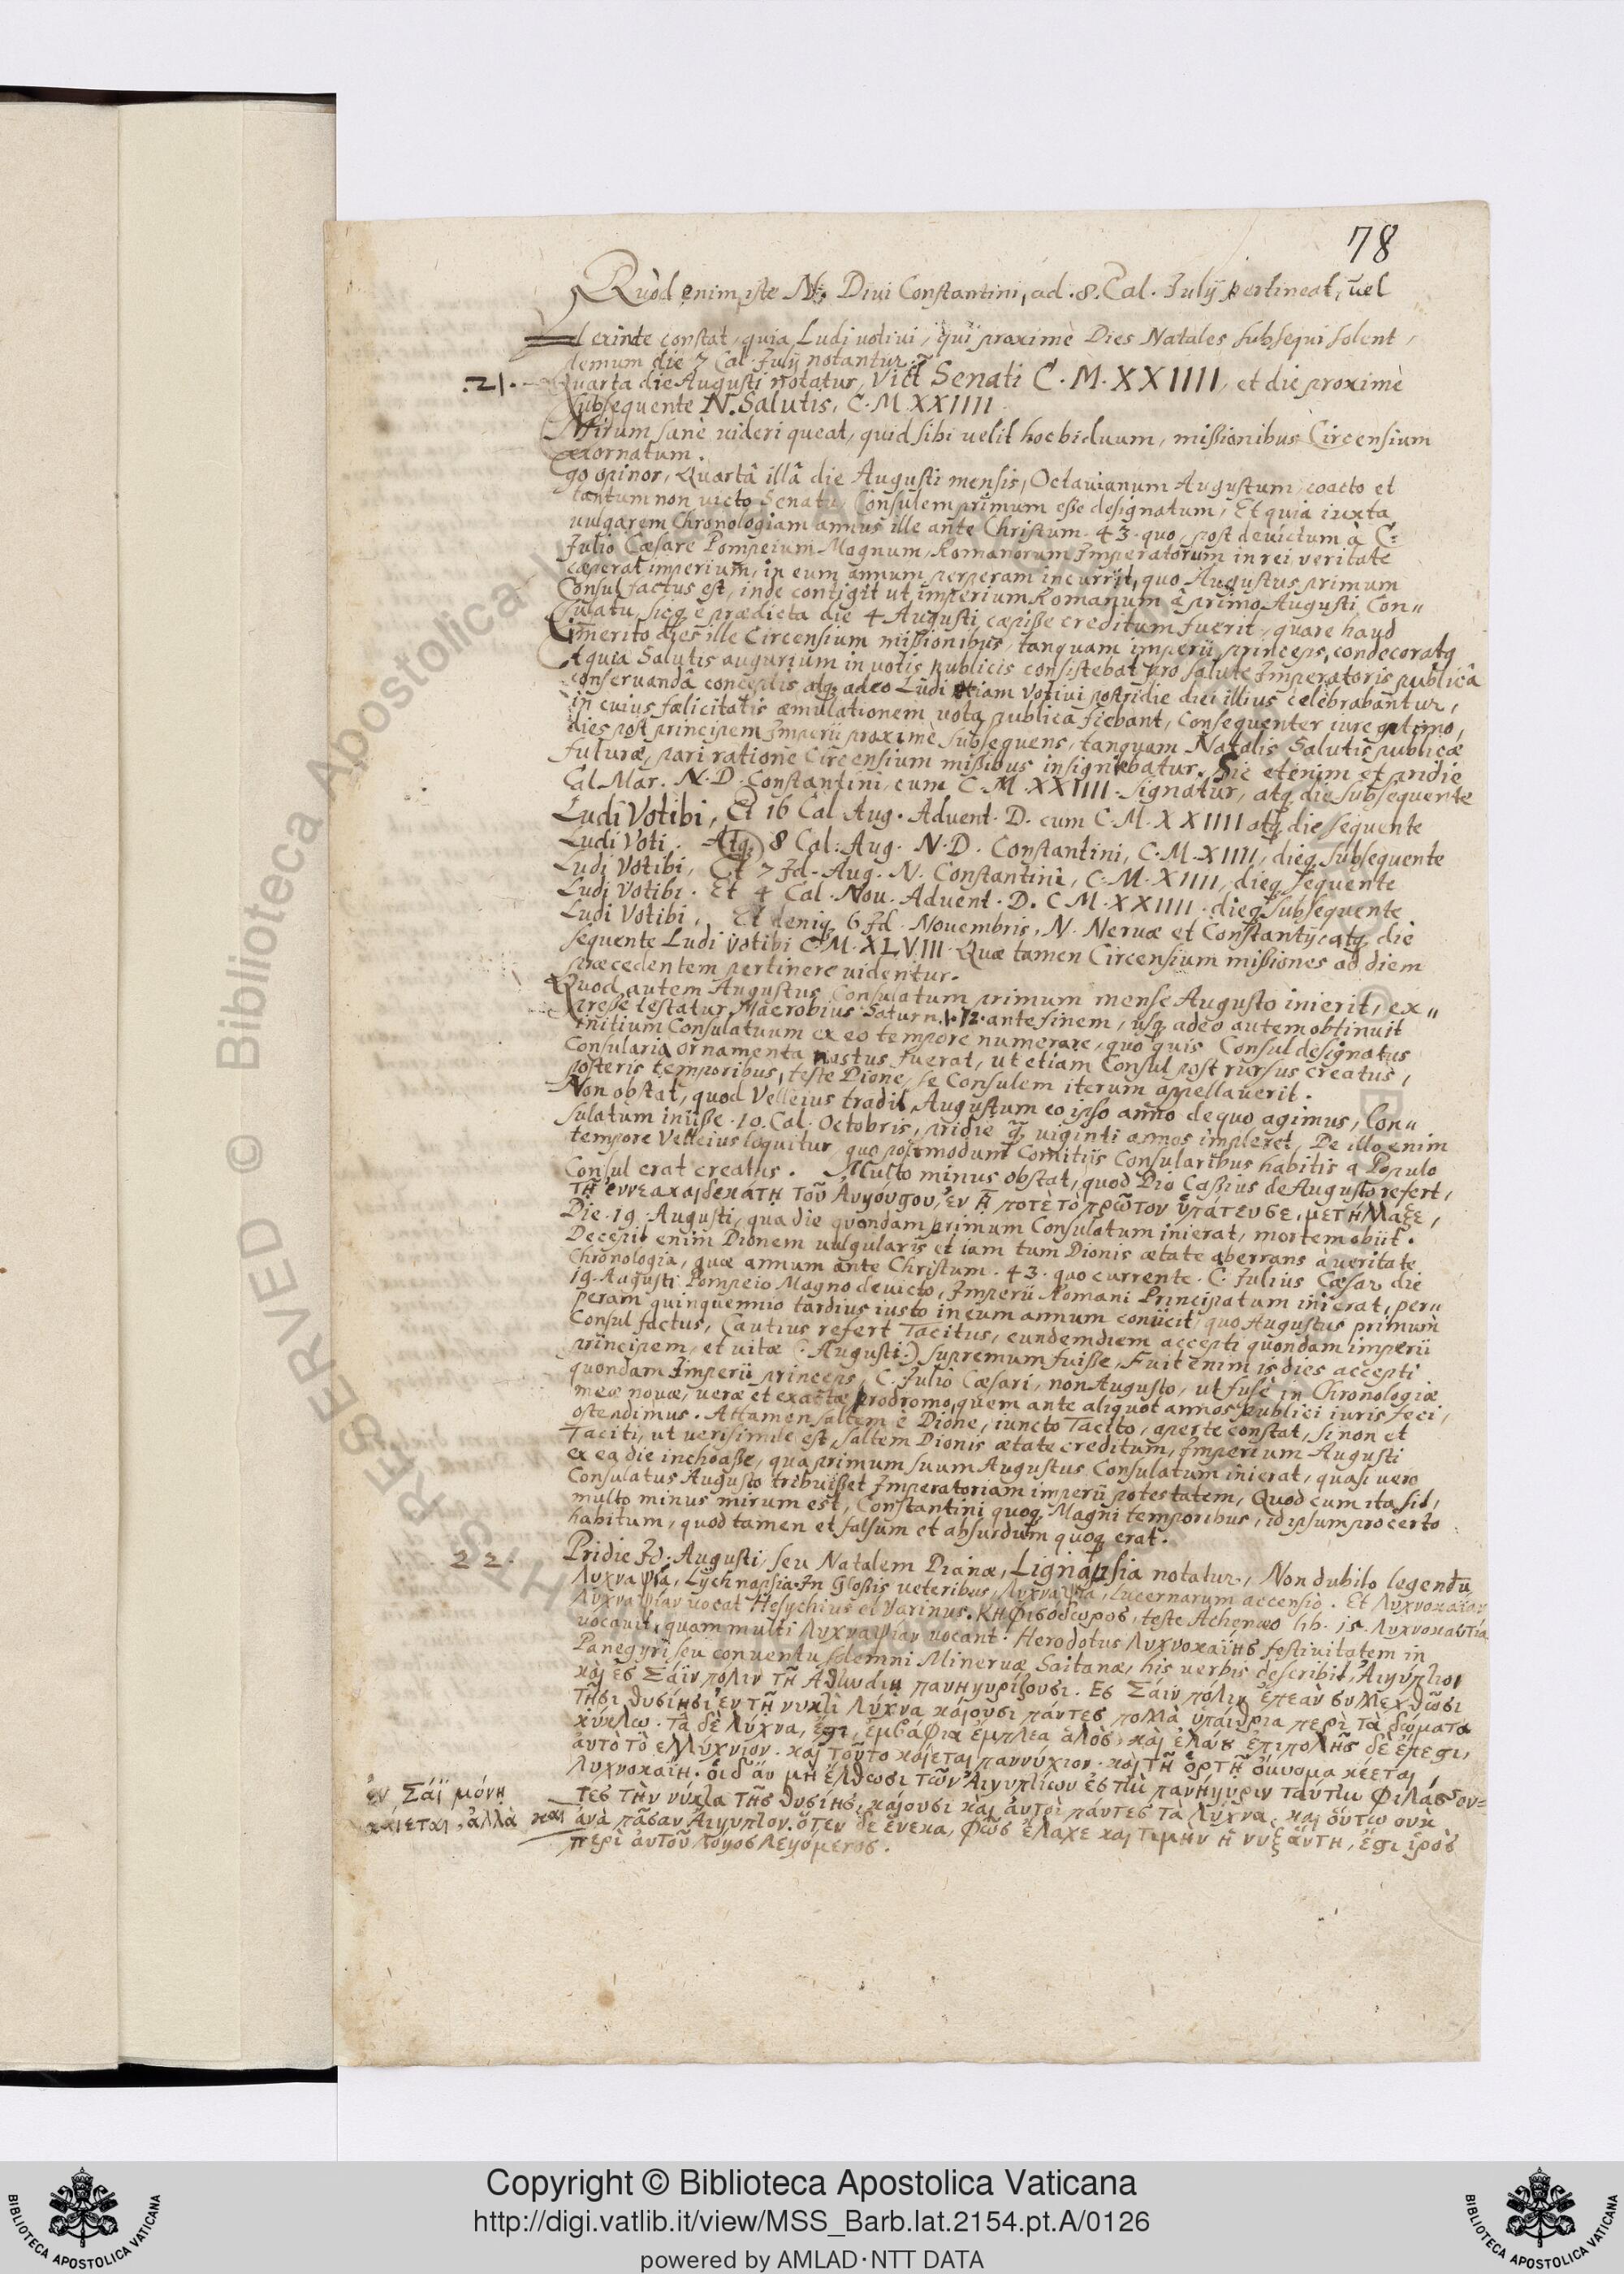 78
Quòd enim iste N. Diui Constantini, ad .8. Cal. Julÿ pertineat, uel
exinde constat, quia Ludi uotiui, qui proximè Dies Natales subsequi solent,
demum die 7 Cal. Julÿ notantur.
.21. Quarta die Augusti notatur, Vict Senati C. M. XXIIII, et die proximè
subsequente N. Salutis, C. M XXIIII
Mirum sanè uideri queat, quid sibi uelit hoc biduum, mißionibus Circensium
exornatum.
Ego opinor, Quartâ illâ die Augusti mensis, Octauianum Augustum coacto et
tantum non uicto Senatu, Consulem primum eße designatum, Et quia iuxta
uulgarem Chronologiam annus ille ante Christum. 43. quo, post deuictum à C.
Julio Cæsare Pompeium Magnum, Romanorum Imperatorum in rei veritate
cœperat imperium, in eum annum perperam incurrit, quo Augustus primum
Consul factus est, inde contigit ut imperium Romanum à primo Augusti Con„
sulatu, sicq; è prædicta die 4 Augusti cœpiße creditum fuerit, quare haud
immerito dies ille Circensium mißionibus, tanquam imperii princeps, condecoratq
Et quia Salutis augurium in uotis publicis consistebat pro salute Imperatoris publicâ
conseruandâ conceptis atq; adeo Ludi etiam Votiui postridie diei illius celebrabantur,
in cuius fœlicitatis æmulationem uota publica fiebant, Consequenter iure optimo,
dies post principem Imperii proximè subsequens, tanquam Natalis Salutis publicæ
futuræ, pari ratione Circensium mißibus insigniebatur. Sic etenim et pridie
Cal. Mar. N. D. Constantini, cum C. M. XXIIII. signatur, atq; die subsequente
Ludi Votibi, Et 16 Cal Aug. Advent. D. cum C. M. XXIIII atq; die sequente
Ludi Voti. Atq; 8 Cal: Aug. N. D. Constantini, C. M. XIIII, dieq; subsequente
Ludi Votibi, Et 7 Id. Aug. N. Constantini, C. M. XIIII, dieq; sequente
Ludi Votibi. Et 4 Cal. Nou. Advent. D. C M. XXIIII. dieq; subsequente
Ludi Votibi, Et deniq; 6 Id. Nouembris, N. Neruæ et Constantÿ, atq; die
sequente Ludi Votibi C. M. XLVIII. Quæ tamen Circensium mißiones ad diem
præcedentem pertinere uidentur.
Quod autem Augustus Consulatum primum mense Augusto inierit, ex„
preßè testatur Macrobius Saturn. 1. 12. ante finem, usq; adeo autem obtinuit
initium Consulatuum ex eo tempore numerare, quo quis Consul designatus
Consularia ornamenta nactus fuerat, ut etiam Consul post rursus creatus,
posteris temporibus, teste Dione, se Consulem iterum appellauerit.
Non obstat, quod Velleius tradit, Augustum eo ipso anno de quo agimus, Con„
sulatum inijße .10. Cal. Octobris, pridie q; uiginti annos impleret, De illo enim
tempore Velleius loquitur, quo postmodum Comitiis Consularibus habitis a Populo
Consul erat creatus. Multo minus obstat, quod Dio Caßius de Augusto refert,
τῇ ἐννεακαιδεκάτῃ τοῦ Αὐγούστου, ἐν ᾗ ποτὲ τὸ πρῶτον ὑπάτευσε, μετήλλαξε,
Die .19. Augusti, qua die quondam primum Consulatum inierat, mortem obiit.
Decepit enim Dionem uulgularis et iam tum Dionis ætate aberrans à ueritate
Chronologia, quæ annum ante Christum .43. quo currente. C. Julius Cæsar die
19. Augusti Pompeio Magno deuicto, Imperii Romani Principatum inierat, per„
peram quinquennio tardius iusto in eum annum coniicit, quo Augustus primùm
Consul factus, Cautius refert Tacitus, eundem diem accepti quondam imperii
principem, et uitæ (. Augusti.) supremum fuiße, Fuit enim is dies accepti
quondam Imperii princeps, C. Julio Cæsari, non Augusto, ut fusè in Chronologiæ
meæ nouæ, ueræ et exactæ prodromo, quem ante aliquot annos publici iuris feci,
ostendimus. Attamen saltem è Dione, iuncto Tacito, aperte constat, si non et
Taciti, ut uerisimile est, saltem Dionis ætate creditum, Imperium Augusti
ex ea die inchoaße, qua primum suum Augustus Consulatum inierat, quasi uero
Consulatus Augusto tribuißet Imperatoriam imperii potestatem, Quod cum ita sit,
multo minus mirum est, Constantini quoq; Magni temporibus, id ipsum pro certo
habitum, quod tamen et falsum et absurdum quoq; erat.
22. Pridie Id. Augusti, seu Natalem Dianæ, Lignapsia notatur, Non dubito legendū
λυχναψία, Lychnapsia. In Gloßis ueteribus, λυχναψία, Lucernarum accensio. Et λυχνοκαίαν
λυχναψίαν uocat Hesychius et Varinus. Κηφισόδωρος, teste Athenæo lib. 15. λυχνοκαυτία
uocauit, quam multi λυχναψίαν uocant. Herodotus λυχνοκαΐης festiuitatem in
Panegyri seu conuentu solemni Mineruæ Saitanæ, his uerbis describit, Αἰγύπτιοι
καὶ ἐς Σάϊν πόλιν τῇ Ἀθηναίῃ πανηγυρίζουσι. Ἐς Σάιν πόλιν ἐπεὰν συλλεχθῶσι
τῇσι θυσίῃσι ἐν τῇ νυκτὶ λύχνα καίουσι πάντες πολλὰ ὑπαίθρια περὶ τὰ δώματα
κύκλῳ. τὰ δὲ λύχνα, ἐστι, ἐμβάφια ἔμπλεα ἁλὸς, καὶ ἐλαίου ἐπιπολῆς δὲ ἔπεστι,
αὐτὸ τὸ ἐλλύχνιον. καὶ τοῦτο καίεται παννύχιον. καὶ τῇ ὁρτῇ οὔνομα κέεται,
λυχνοκαΐη. οἱ δ' ἂν μὴ ἔλθωσι τῶν Αἰγυπτίων ἐς τὴν πανήγυριν ταύτην φιλάσσον=
τες τὴν νύκτα τῆς θυσίης, καίουσι καὶ αὐτοὶ πάντες τὰ λύχνα. καὶ οὕτω οὐκ
ἐν Σάϊ μόνῃ
καίεται, ἀλλὰ καὶ ἀνὰ πᾶσαν Αἴγυπτον. ὅτευ δὲ ἕνεκα, φῶς ἔλαχε καὶ τιμὴν ἡ νὺξ αὕτη, ἔστι ἱρὸς
περὶ αὐτοῦ λόγος λεγόμενος.
RESERVED © Biblioteca Apostolica Vaticana
Copyright © Biblioteca Apostolica Vaticana
http://digi.vatlib.it/view/MSS_Barb.lat.2154.pt.A/0126
powered by AMLAD·NTT DATA
BIBLIOTECA APOSTOLICA VATICANA
BIBLIOTECA APOSTOLICA VATICANA